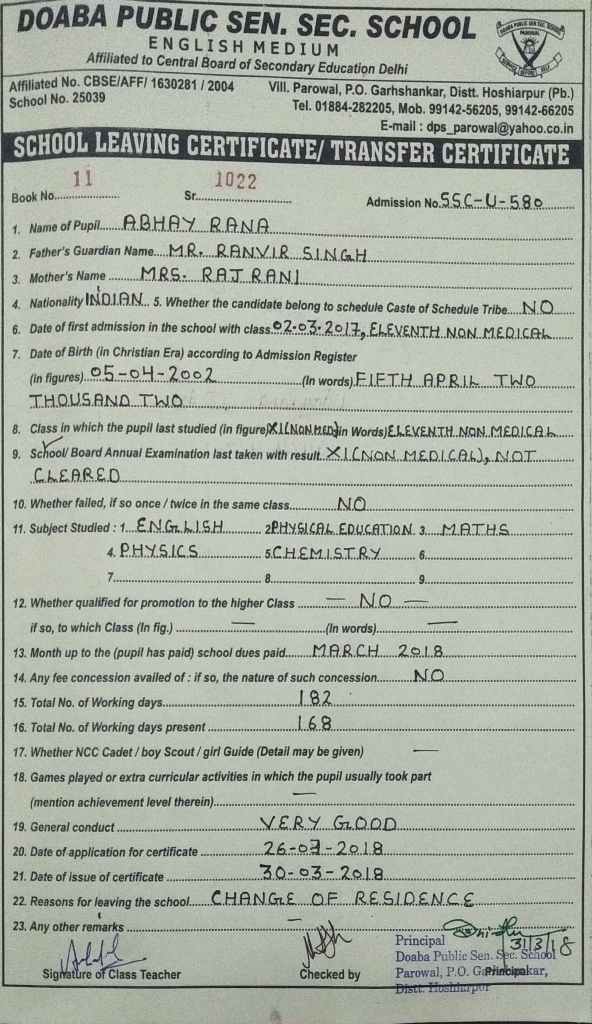 DOABA PUBLIC SEN. SEC. SCHOOL
ENGLISH MEDIUM
Affiliated to Central Board of Secondary Education Delhi
Affiliated No. CBSE/AFF/ 1630281 / 2004
School No. 25039
Vill. Parowal, P.O. Garhshankar, Distt. Hoshiarpur (Pb.)
Tel. 01884-282205, Mob. 99142-56205, 99142-66205
E-mail : dps_parowal@yahoo.co.in
SCHOOL LEAVING CERTIFICATE/ TRANSFER CERTIFICATE
Book No. 11 Sr. 1022 Admission No. SSC-U-580
1. Name of Pupil ABHAY RANA
2. Father's Guardian Name MR. RANVIR SINGH
3. Mother's Name MRS. RAJ RANI
4. Nationality INDIAN 5. Whether the candidate belong to schedule Caste of Schedule Tribe NO
6. Date of first admission in the school with class 02.03.2017, ELEVENTH NON MEDICAL
7. Date of Birth (in Christian Era) according to Admission Register
(in figures) 05-04-2002 (In words) FIFTH APRIL TWO
THOUSAND TWO
8. Class in which the pupil last studied (in figure) XI(NON MED) in Words) ELEVENTH NON MEDICAL
9. School/ Board Annual Examination last taken with result XI(NON MEDICAL), NOT
CLEARED
10. Whether failed, if so once / twice in the same class NO
11. Subject Studied : 1. ENGLISH 2. PHYSICAL EDUCATION 3. MATHS
4. PHYSICS 5. CHEMISTRY 6.
7. 8. 9.
12. Whether qualified for promotion to the higher Class — NO —
if so, to which Class (In fig.) — (In words) —
13. Month up to the (pupil has paid) school dues paid MARCH 2018
14. Any fee concession availed of : if so, the nature of such concession NO
15. Total No. of Working days 182
16. Total No. of Working days present 168
17. Whether NCC Cadet / boy Scout / girl Guide (Detail may be given) —
18. Games played or extra curricular activities in which the pupil usually took part
(mention achievement level therein) —
19. General conduct VERY GOOD
20. Date of application for certificate 26-03-2018
21. Date of issue of certificate 30-03-2018
22. Reasons for leaving the school CHANGE OF RESIDENCE
23. Any other remarks —
31/3/18
Principal
Doaba Public Sen. Sec. School
Signature of Class Teacher Checked by Parowal, P.O. Principal
Distt. Hoshiarpur